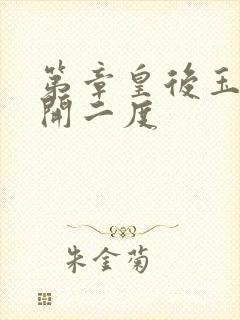 第章皇後玉
開二度
朱金菊